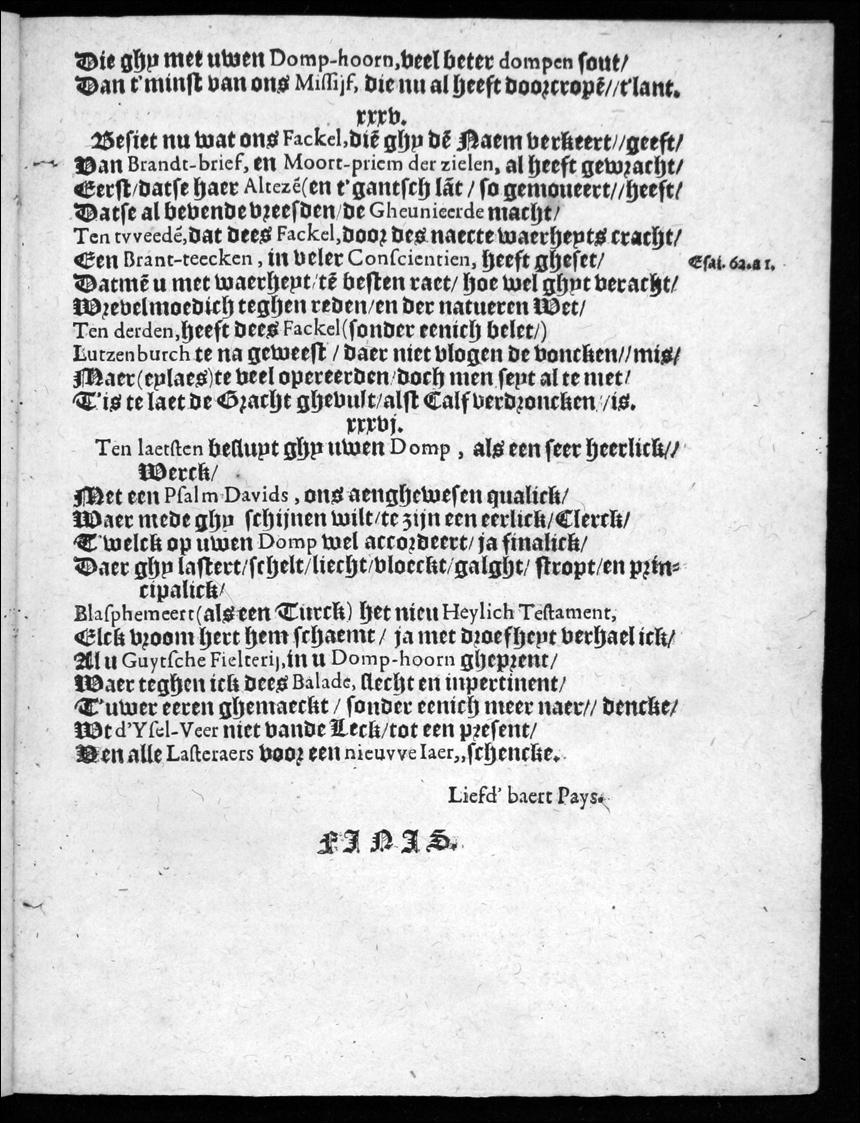 Die ghy met uwen Domp-hoorn, veel beter dompen sout/
Dan t'minst van ons Missijf, die nu al heeft doorcropẽ//t'lant.
xxxv.
Besiet nu wat ons Fackel, diẽ ghy dẽ Naem verkeert//geeft/
Van Brandt-brief, en Moort-priem der zielen, al heeft gewracht/
Eerst/datse haer Altezẽ(en t'gantsch lãt / so gemoveert//heeft/
Datse al bevende vreesden/de Gheunieerde macht/
Ten tvveedẽ, dat dees Fackel, door des naecte waerheyts cracht/
Een Brant-teecken, in veler Conscientien, heeft gheset/
Esai. 62.a 1.
Datmẽ u met waerheyt/tẽ besten raet/ hoe wel ghyt veracht/
Wrevelmoedich teghen reden/en der natueren Wet/
Ten derden, heeft dees Fackel(sonder eenich belet/)
Lutzenburch te na geweest / daer niet vlogen de voncken//mis/
Maer(eylaes)te veel opereerden/doch men seyt al te met/
T'is te laet de Gracht ghevult/alst Calf verdroncken //is.
xxxvj.
Ten laetsten besluyt ghy uwen Domp, als een seer heerlick//
Werck/
Met een Psalm Davids, ons aenghewesen qualick/
Waer mede ghy schijnen wilt/te zijn een eerlick/Clerck/
T'welck op uwen Domp wel accordeert/ ja finalick/
Daer ghy lastert/schelt/liecht/vloeckt/galght/ stropt/en prin-
cipalick/
Blasphemeert(als een Turck) het nieu Heylich Testament,
Elck vroom hert hem schaemt / ja met droefheyt verhael ick/
Al u Guytsche Fielterij, in u Domp-hoorn gheprent/
Waer teghen ick dees Balade, slecht en inpertinent/
T'uwer eeren ghemaeckt / sonder eenich meer naer// dencke/
Wt d'Ysel-Veer niet vande Leck/tot een present/
Den alle Lasteraers voor een nieuvve Iaer,,schencke.
Liefd' baert Pays.
FINIS.